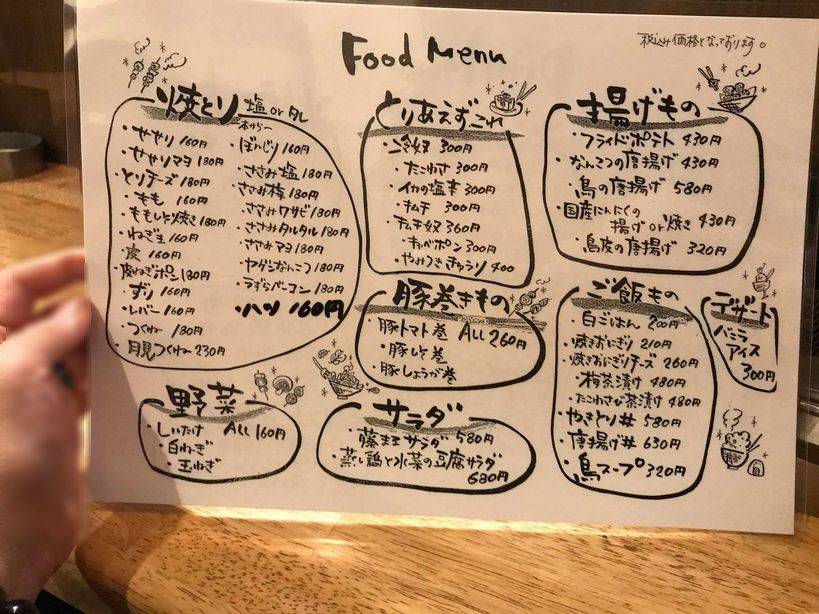 Food Menu
税込み価格となっております。
焼とり 塩 or タレ
一本から〜
・せせり 160円
・せせりマヨ 180円
・とりチーズ 180円
・もも 160円
・ももしそ焼き 180円
・ねぎま 160円
・皮 160円
・皮ねぎポン 180円
・ずり 160円
・レバー 160円
・つくね 180円
・月見つくね 230円
・ぼんじり 160円
・ささみ塩 180円
・ささみ梅 180円
・ささみワサビ 180円
・ささみタルタル 180円
・ささみマヨ 180円
・ヤゲンなんこつ 180円
・うずらベーコン 180円
・ハツ 160円
とりあえずこれ
・冷奴 300円
・たこわさ 300円
・イカの塩辛 300円
・キムチ 300円
・キムチ奴 360円
・キャベポン 300円
・やみつききゅうり 400
揚げもの
・フライドポテト 430円
・なんこつの唐揚げ 430円
・鳥の唐揚げ 580円
・国産にんにくの
揚げ or 焼き 430円
・鳥皮の唐揚げ 320円
豚巻きもの
・豚トマト巻 ALL 260円
・豚しそ巻
・豚しょうが巻
ご飯もの
・白ごはん 200円
・焼きおにぎり 210円
・焼きおにぎりチーズ 260円
・梅茶漬け 480円
・たこわさび茶漬け 480円
・やきとり丼 580円
・唐揚げ丼 630円
・鳥スープ 320円
デザート
・バニラ
アイス
300円
野菜
・しいたけ ALL 160円
・白ねぎ
・玉ねぎ
サラダ
・サラダ 580円
・蒸し鶏と水菜の豆腐サラダ
680円